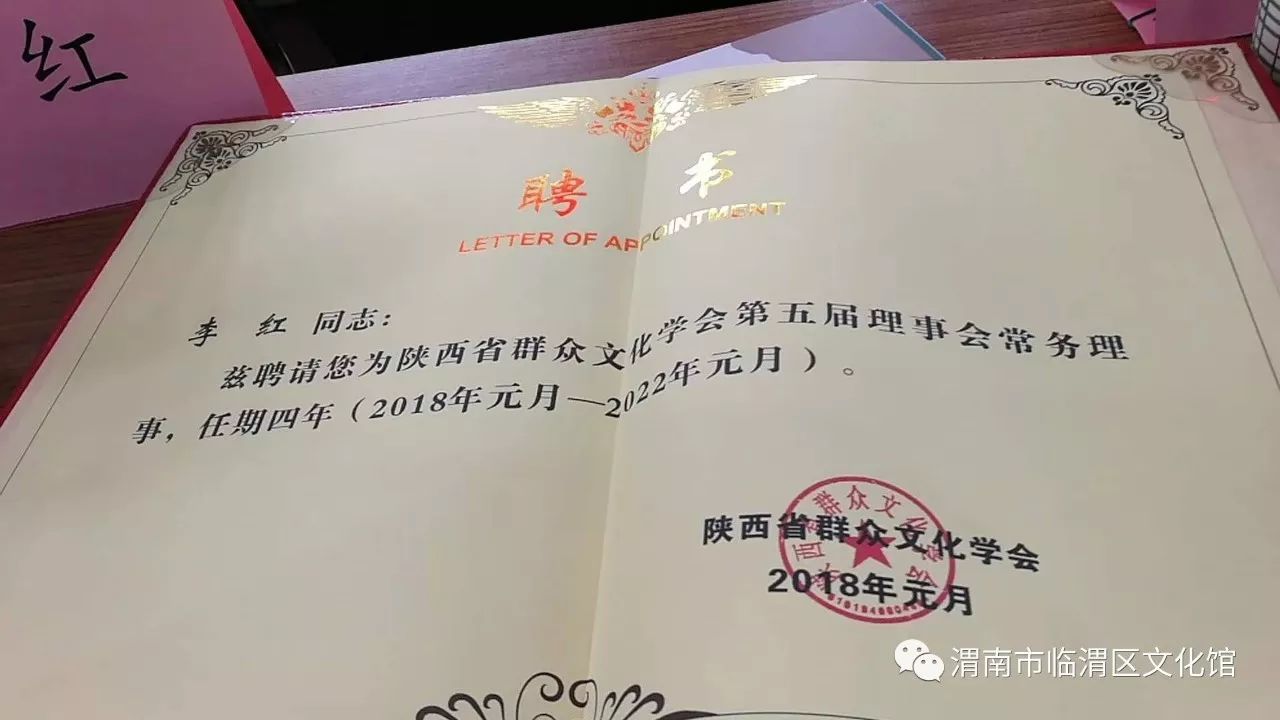 红
聘 书
LETTER OF APPOINTMENT
李 红 同志：
兹聘请您为陕西省群众文化学会第五届理事会常务理
事，任期四年（2018年元月—2022年元月）。
陕西省群众文化学会
2018年元月
陕西省群众文化学会
渭南市临渭区文化馆